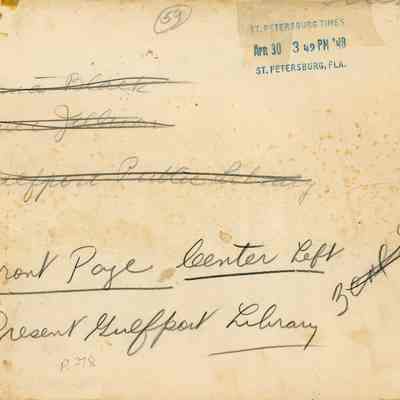 59
ST. PETERSBURG TIMES
APR 30 3 49 PM '48
ST. PETERSBURG, FLA.
Black
Gulfport Public Library
Front Page Center Left
Present Gulfport Library
P. 278